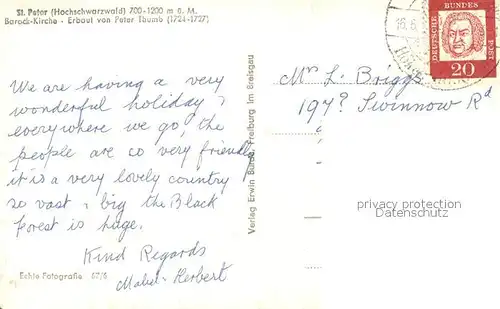 St. Peter (Hochschwarzwald) 700-1200 m ü. M.
Barock-Kirche - Erbaut von Peter Thumb (1724-1727)
We are having a very
wonderful holiday
everywhere we go, the
people are so very friendly
it is a very lovely country
so vast & big the Black
Forest is huge.
Kind Regards
Mabel - Herbert
Echte Fotografie 67/6
Verlag Erwin Burda, Freiburg im Breisgau
16.6.
DEUTSCHE BUNDESPOST
20
Mr L. Briggs
197 Swinnow Rd
privacy protection
Datenschutz